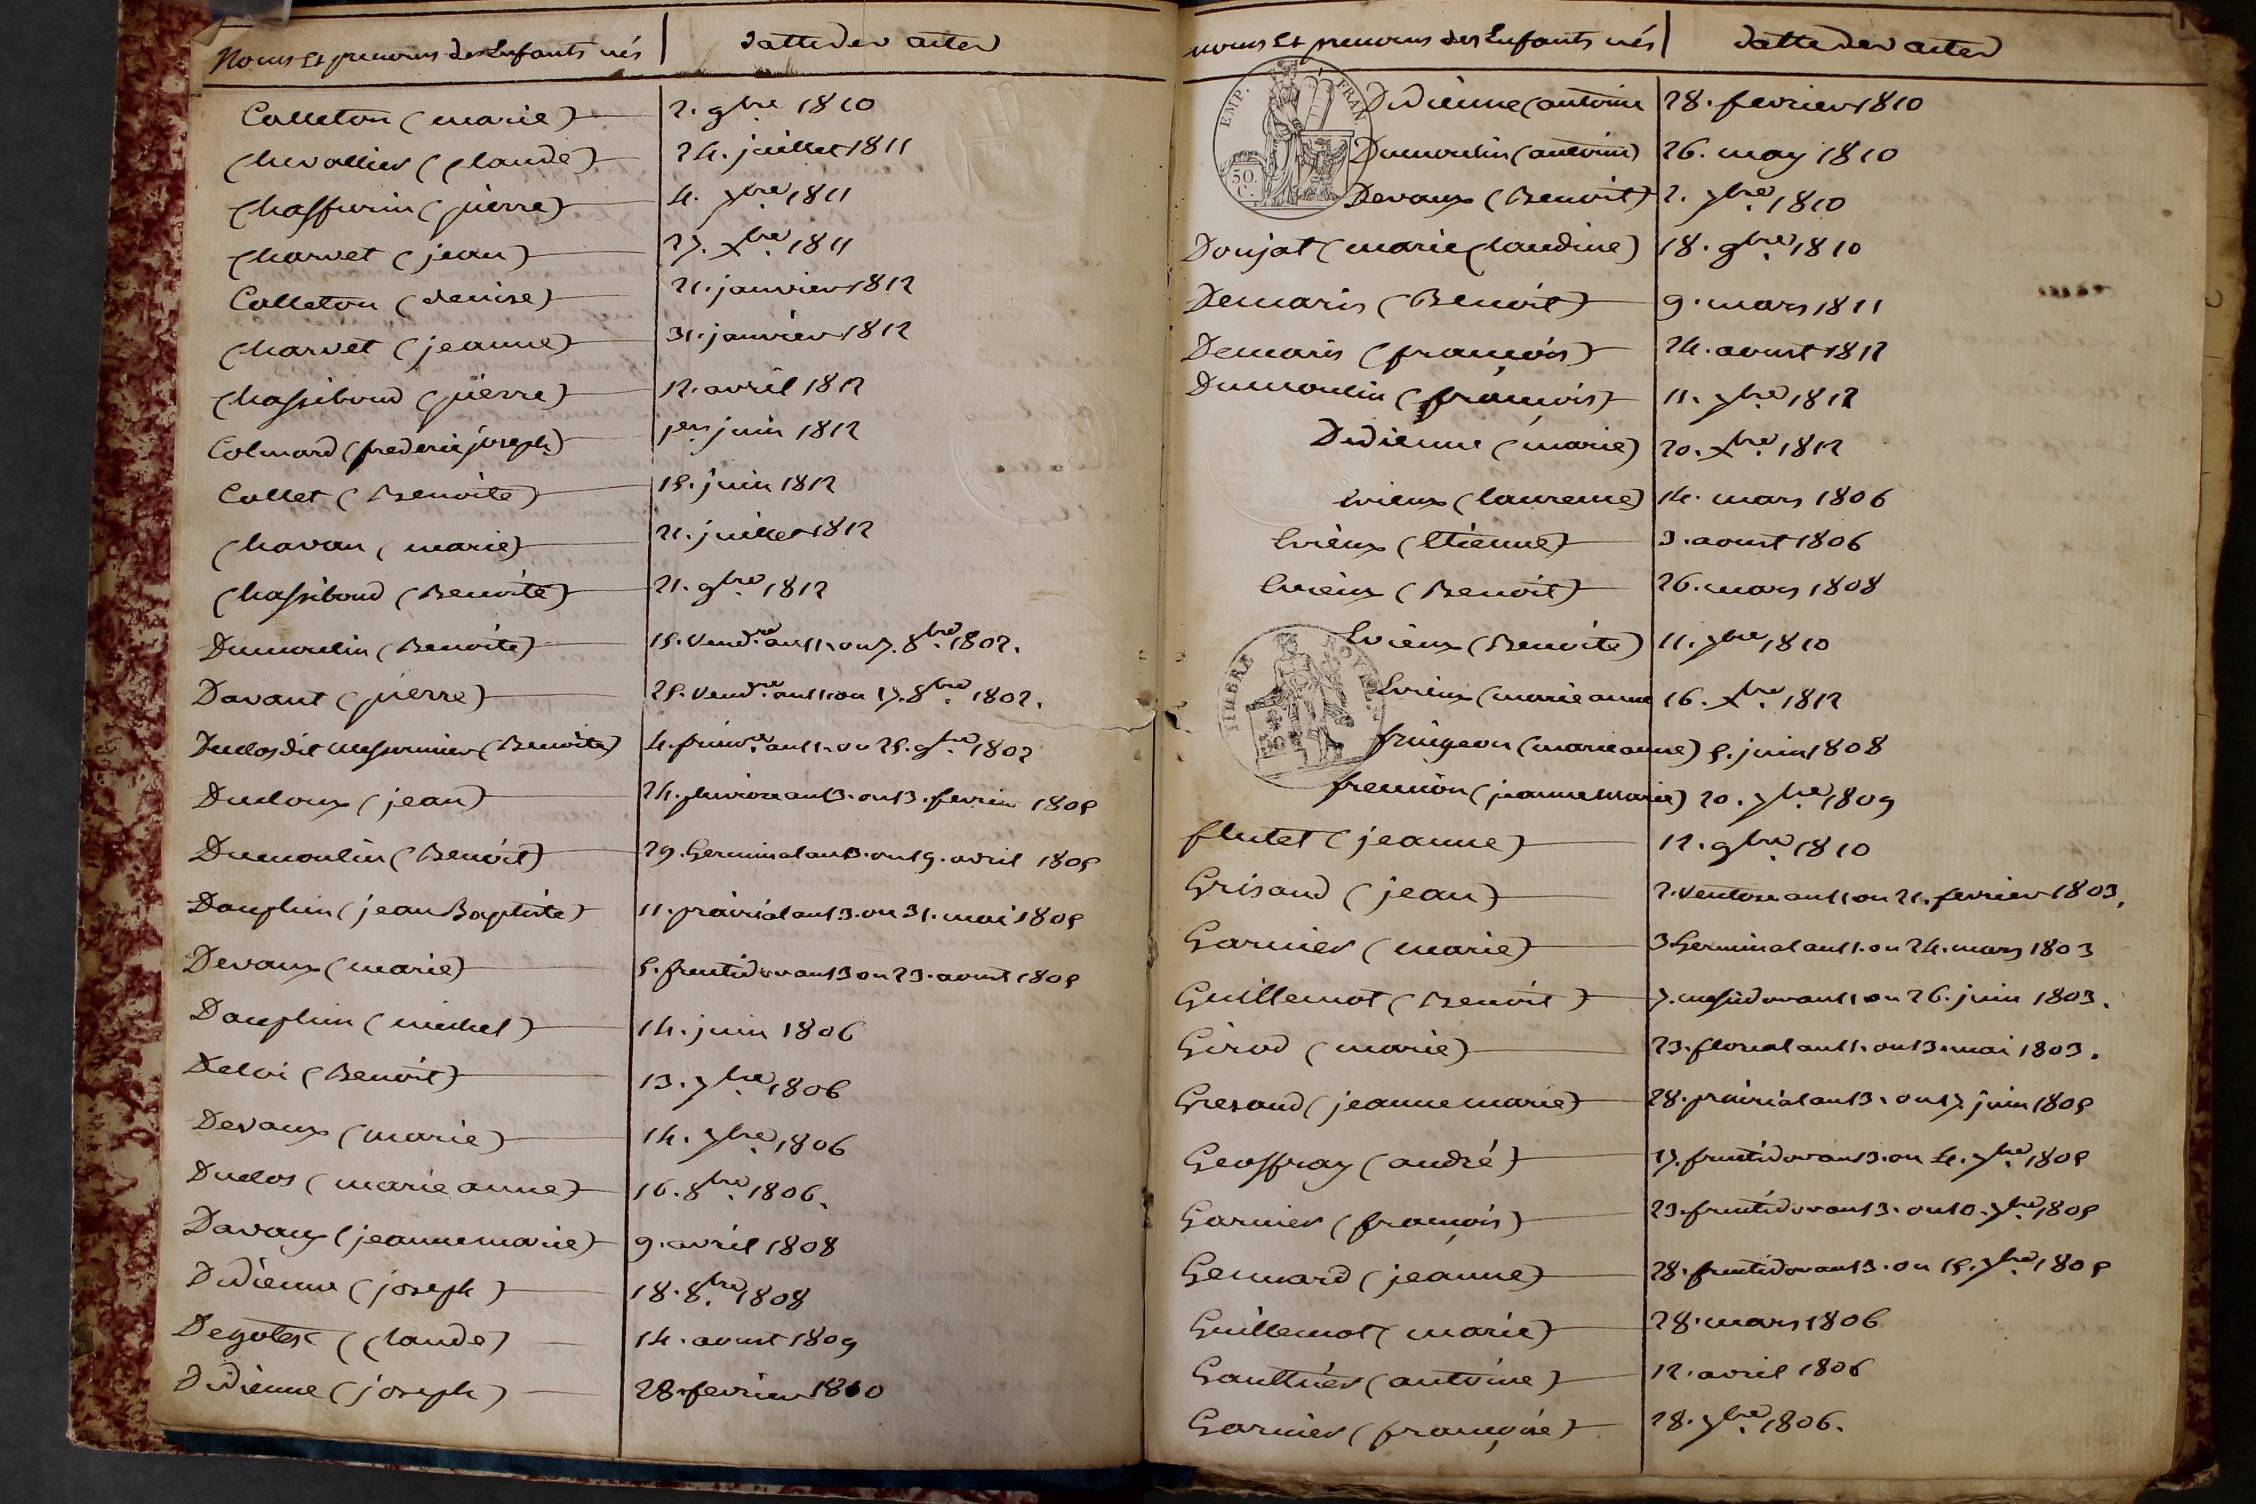 Noms et prenoms des Enfants nés | datte des actes
Colleton (marie) 2. 9bre 1810
Chevallier (Claude) 24. juillet 1811
Chaffurin (pierre) 4. 7bre 1811
Charvet (jean) 27. Xbre 1811
Colleton (denise) 21. janvier 1812
Charvet (jeanne) 31. janvier 1812
Chassiboud (pierre) 12. avril 1812
Colmard (frederic joseph) 1er juin 1812
Collet (Benoite) 15. juin 1812
Chavan (marie) 21. juillet 1812
Chassiboud (Benoite) 21. 9bre 1812
Dumoulin (Benoite) 15. Vendre an 11. ou 7. 8bre 1802.
Davant (pierre) 25. Vendre an 11 ou 17. 8bre 1802.
Duclos dit (Benoite) 4. frimre an 11. ou 25. 9bre 1802
Ducloux (jean) 24. pluviose an 13. ou 13. fevrier 1805
Dumoulin (Benoit) 29. Germinal an 13. ou 19. avril 1805
Dauphin (jean Baptiste) 11. prairial an 13. ou 31. mai 1805
Devaux (marie) 5. fructidor an 13 ou 23. aoust 1805
Dauphin (michel) 14. juin 1806
Deloi (Benoit) 13. 7bre 1806
Devaux (marie) 14. 7bre 1806
Duclos (marie anne) 16. 8bre 1806.
Davaux (jeanne marie) 9. avril 1808
Didienne (joseph) 18. 8bre 1808
Degotex (Claude) 14. aoust 1809
Didienne (joseph) 28. fevrier 1810
noms et prenoms des Enfants nés | datte des actes
EMP. FRAN.
50. C.
Didienne (antoine 28. fevrier 1810
Dumoulin (antoine) 26. may 1810
Devaux (Benoit) 2. 7bre 1810
Donjat (marie Claudine) 18. 9bre 1810
Demaris (Benoit) 9. mars 1811
Demaris (françois) 24. aoust 1812
Dumoulin (françois) 11. 7bre 1812
Didienne (marie) 20. Xbre 1812
Evieux (laurence) 14. mars 1806
Evieux (Etienne) 3. aoust 1806
Evieux (Benoit) 26. mars 1808
Evieux (Benoite) 11. 7bre 1810
TIMBRE ROYAL
Evieux (marie anne 16. Xbre 1812
fringeon (marie anne) 5. juin 1808
fremion (jeanne Marie) 20. 7bre 1809
flutet (jeanne) 12. 9bre 1810
Grisaud (jean) 2. Ventose an 11 ou 21. fevrier 1803.
Garnier (marie) 3 Germinal an 11. ou 24. mars 1803
Guillemot (Benoit) 7. messidor an 11 ou 26. juin 1803.
Girod (marie) 23. floreal an 11. ou 13. mai 1803.
Gresaud (jeanne marie) 28. prairial an 13. ou 17. juin 1805
Geoffray (andré) 17. fructidor an 13. ou 4. 7bre 1805
Garnier (françois) 23. fructidor an 13. ou 10. 7bre 1805
Gennard (jeanne) 28. fructidor an 13. ou 15. 7bre 1805
Guillemot (marie) 28. mars 1806
Gaulthier (antoine) 12. avril 1806
Garnier (françoise) 28. 7bre 1806.